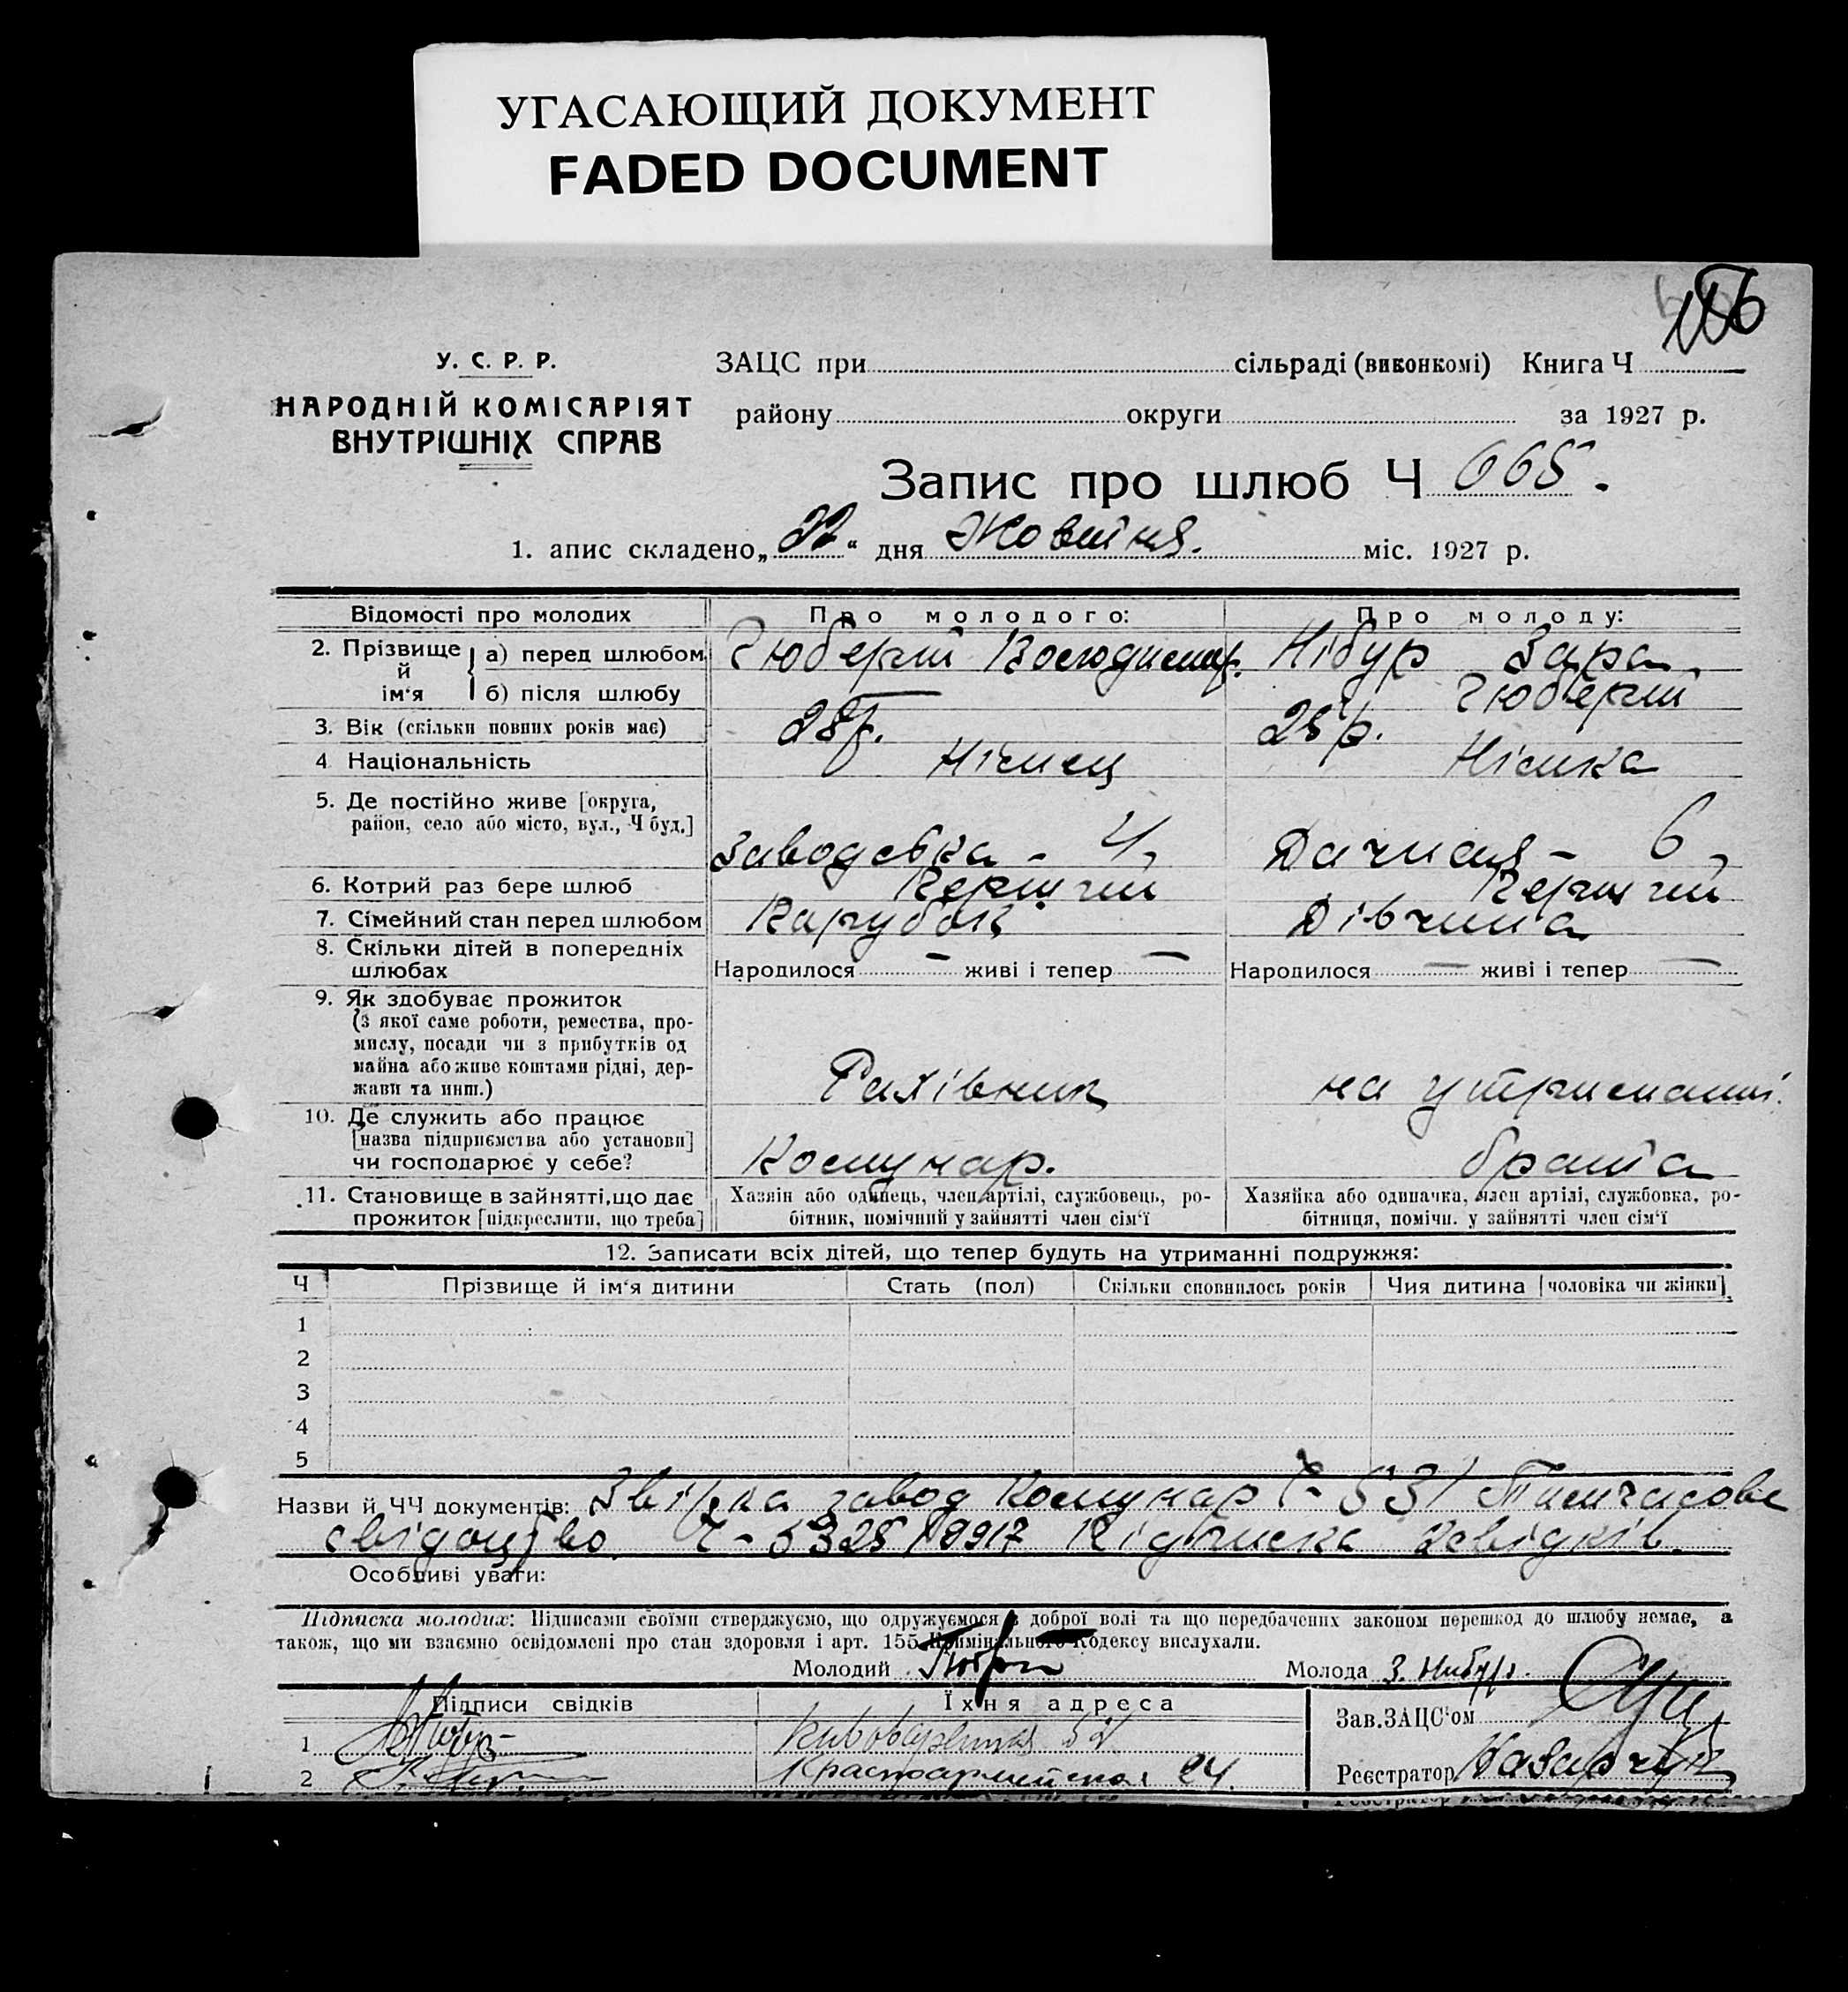 УГАСАЮЩИЙ ДОКУМЕНТ
FADED DOCUMENT
У. С. Р. Р.
НАРОДНІЙ КОМІСАРІЯТ
ВНУТРІШНІХ СПРАВ
ЗАЦС при сільраді (виконкомі) Книга Ч
району округи за 1927 р.
Запис про шлюб Ч 665.
1. апис складено „22“ дня Жовтня. міс. 1927 р.
Відомості про молодих Про молодого: Про молоду:
2. Прізвище й ім‘я а) перед шлюбом Гюберт Володимир. Нібур Зара
б) після шлюбу Гюберт
3. Вік (скільки повних років має) 28 р. 28 р.
4 Національність Німец Німка
5. Де постійно живе [округа,
район, село або місто, вул., Ч буд.] Заводська - 4, Дачная - 6,
6. Котрий раз бере шлюб Перший Перший
7. Сімейний стан перед шлюбом Парубок Дівчина
8. Скільки дітей в попередніх
шлюбах Народилося — живі і тепер — Народилося — живі і тепер —
9. Як здобуває прожиток
(з якої саме роботи, ремества, про-
мислу, посади чи з прибутків од
майна або живе коштами рідні, дер-
жави та инш.) Рахівник на утриманні
10. Де служить або працює
[назва підприємства або установи]
чи господарює у себе? Комунар. брата
11. Становище в зайнятті, що дає Хазяін або одинець, член артілі, службовець, ро- Хазяйка або одиначка, член артілі, службовка, ро-
прожиток [підкреслити, що треба] бітник, помічний у зайнятті член сім‘ї бітниця, помічн. у зайнятті член сім‘ї
12. Записати всіх дітей, що тепер будуть на утриманні подружжя:
Ч Прізвище й ім‘я дитини Стать (пол) Скільки сповнилось років Чия дитина [чоловіка чи жінки]
1
2
3
4
5
Назви й ЧЧ документів: Звірка завод Комунар Ч - 531 Тимчасове
свідоцтво Ч - 5325/9917 Підписка свідків.
Особливі уваги:
Підписка молодих: Підписами своїми стверджуємо, що одружуємося з доброї волі та що передбачених законом перешкод до шлюбу немає, а
також, що ми взаємно освідомлені про стан здоровля і арт. 155 Кримінального Кодексу вислухали.
Молодий Молода З. Нибур.
Підписи свідків Їхня адреса Зав. ЗАЦС‘ом
1
2 Красноармейская 24. Реєстратор